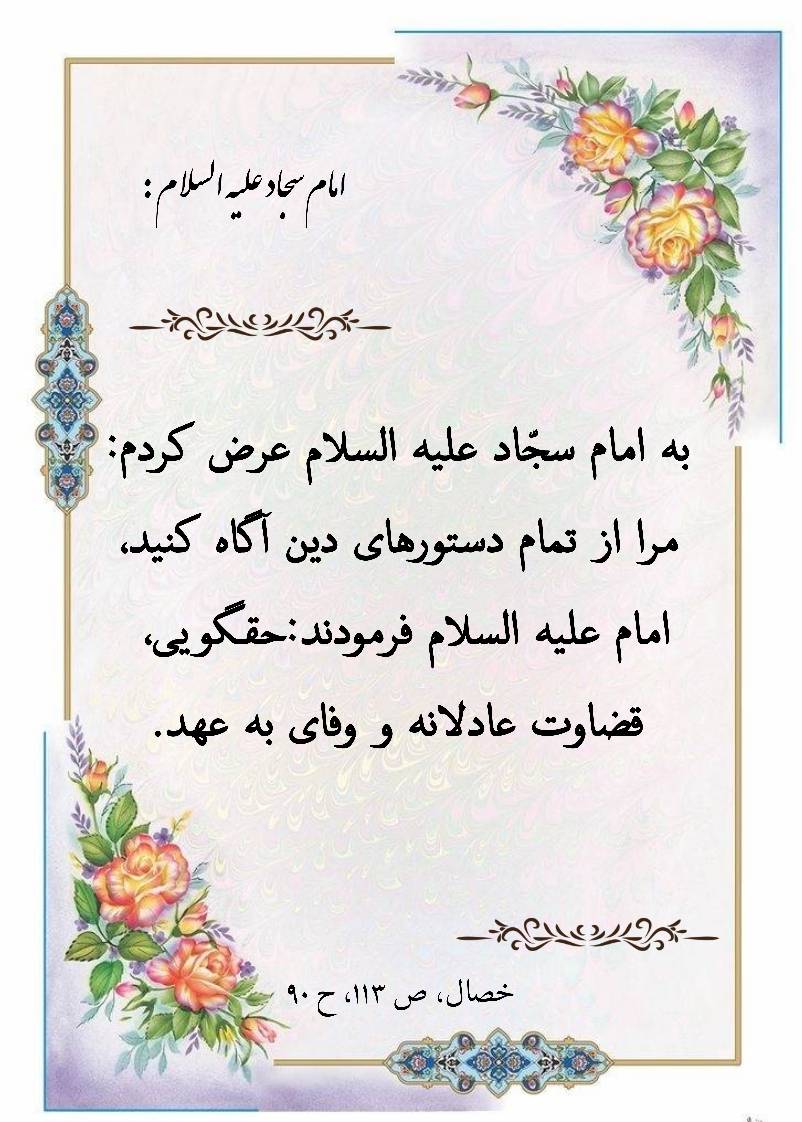 امام سجاد علیه السلام :
به امام سجّاد علیه السلام عرض کردم:
مرا از تمام دستورهای دین آگاه کنید،
امام علیه السلام فرمودند:حقگویی،
قضاوت عادلانه و وفای به عهد.
خصال، ص ۱۱۳، ح ۹۰